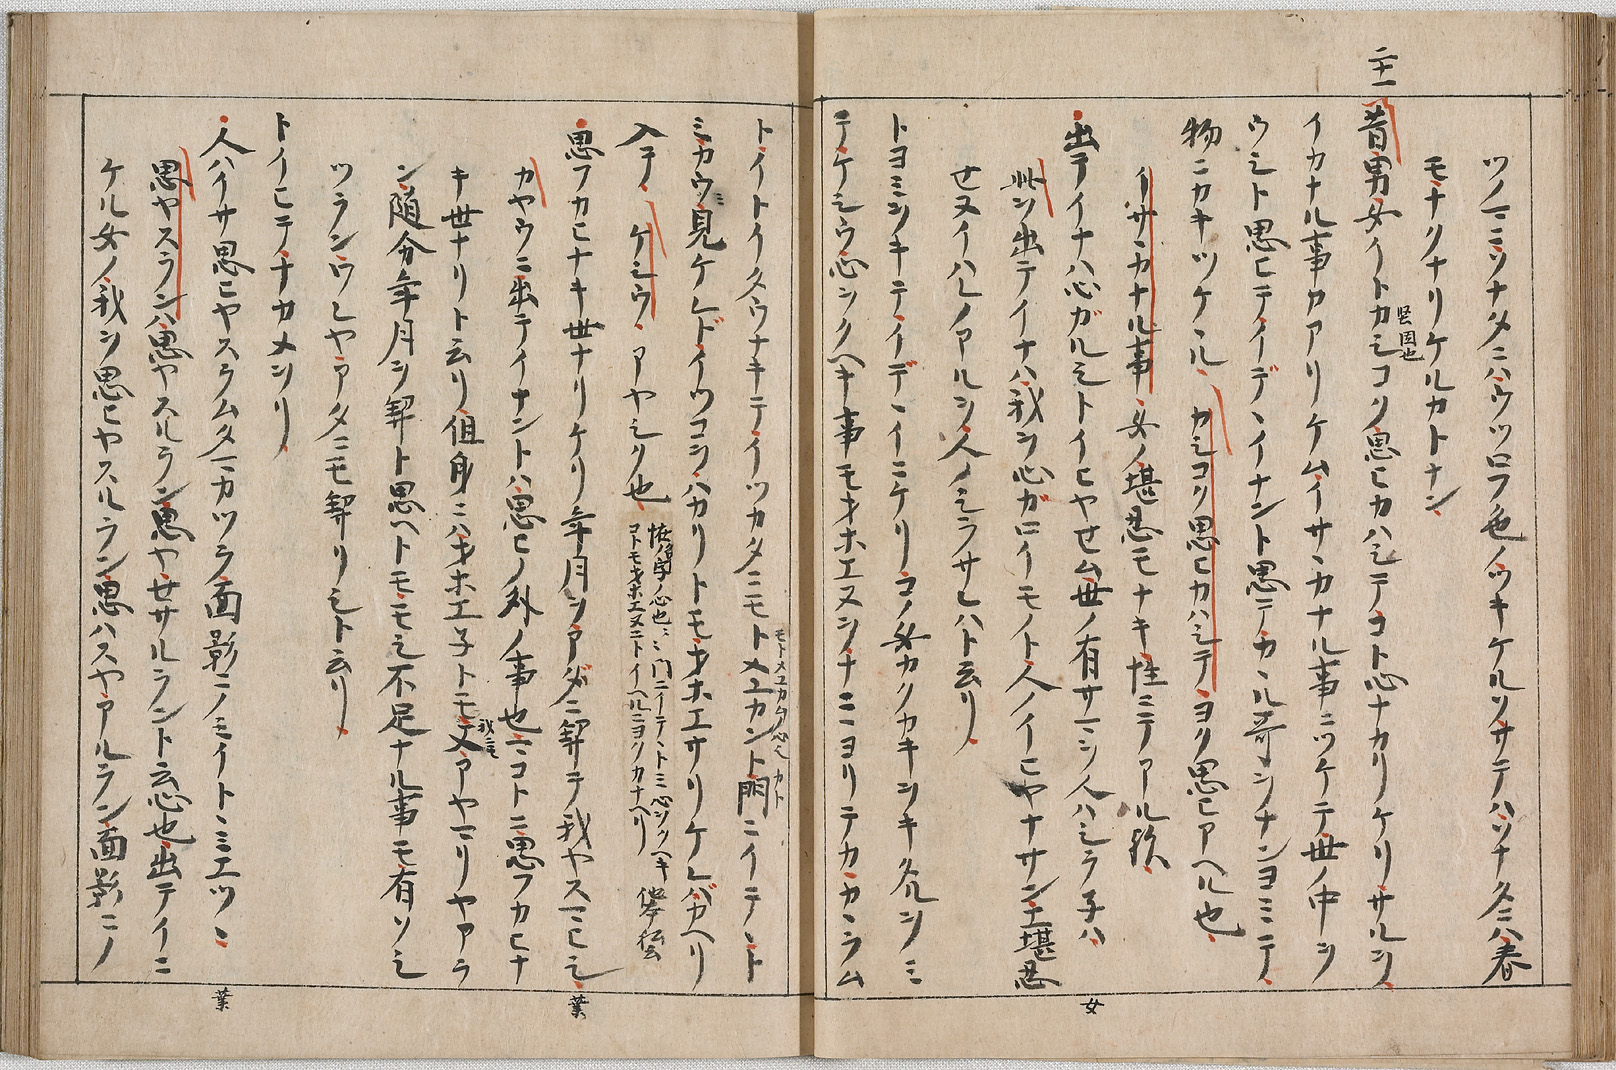 ツノマニツナタメニハウツロフ色ノツキケルソサテハソナタニハ春
モナクナリケルカトナン
廿一
昔男女イトカシコク思ヒカハシテコト心ナカリケリサルヲ
堅固也
イカナル事カアリケムイサヽカナル事ニツケテ世ノ中ヲ
ウシト思ヒテイデヽイナント思テカヽル哥ヲナンヨミテ
物ニカキツケヽル カシコク思ヒカハシテヨク思ヒアヘル也
イサヽカナル事 女ノ堪忍モナキ性ニテアル歟
出テイナハ心ガルシトイヒヤセム世ノ有サマヲ人ハシラネハ
女
此ヲ出テイナハ我ヲ心ガロイモノト人ノイヒヤナサン堪忍
セヌイハレノアルヲ人ノシラサレハト云リ
トヨミヲキテイデヽイニケリコノ女カクカキヲキタルヲミ
テケシウ心ヲクヘキ事モオホエヌヲナニヽヨリテカカヽラム
トイトイタウナキテイツカタニモトメユカント門ニイテヽト
モトメユカム心シカト
ミカウミ見ケレドイツコヲハカリトモオホエサリケレバカヘリ
入テ ケシウ アヤシク也
恠ノ字ノ心也 門ニイテヽトミ心ヲクヘキ
コトモオホエヌニトイヘルニヨクカナヘリ
思フカヒナキ世ナリケリ年月ヲアダニ契テ我ヤスマヒシ
業
カヤウニ出テイナントハ思ヒノ外ノ事也マコトニ思フカヒナ
キ世ナリト云リ但身ニハオホエネトモ又アヤマリヤアラ
我ニモ
ン随分年月ヲ契ト思ヘトモモシ不足ナル事モ有ソシ
ツランウシヤアタニモ契リシト云リ
トイヒテナカメヲリ
人ハイサ思ヒヤスラム玉カツラ面影ニノミイトヽミエツヽ
業
思ヤスランハ思ヤスルラン思ヤセサルラント云心也出テイニ
ケル女ノ我ヲ思ヒヤスルラン思ハスヤアルラン面影ニノ